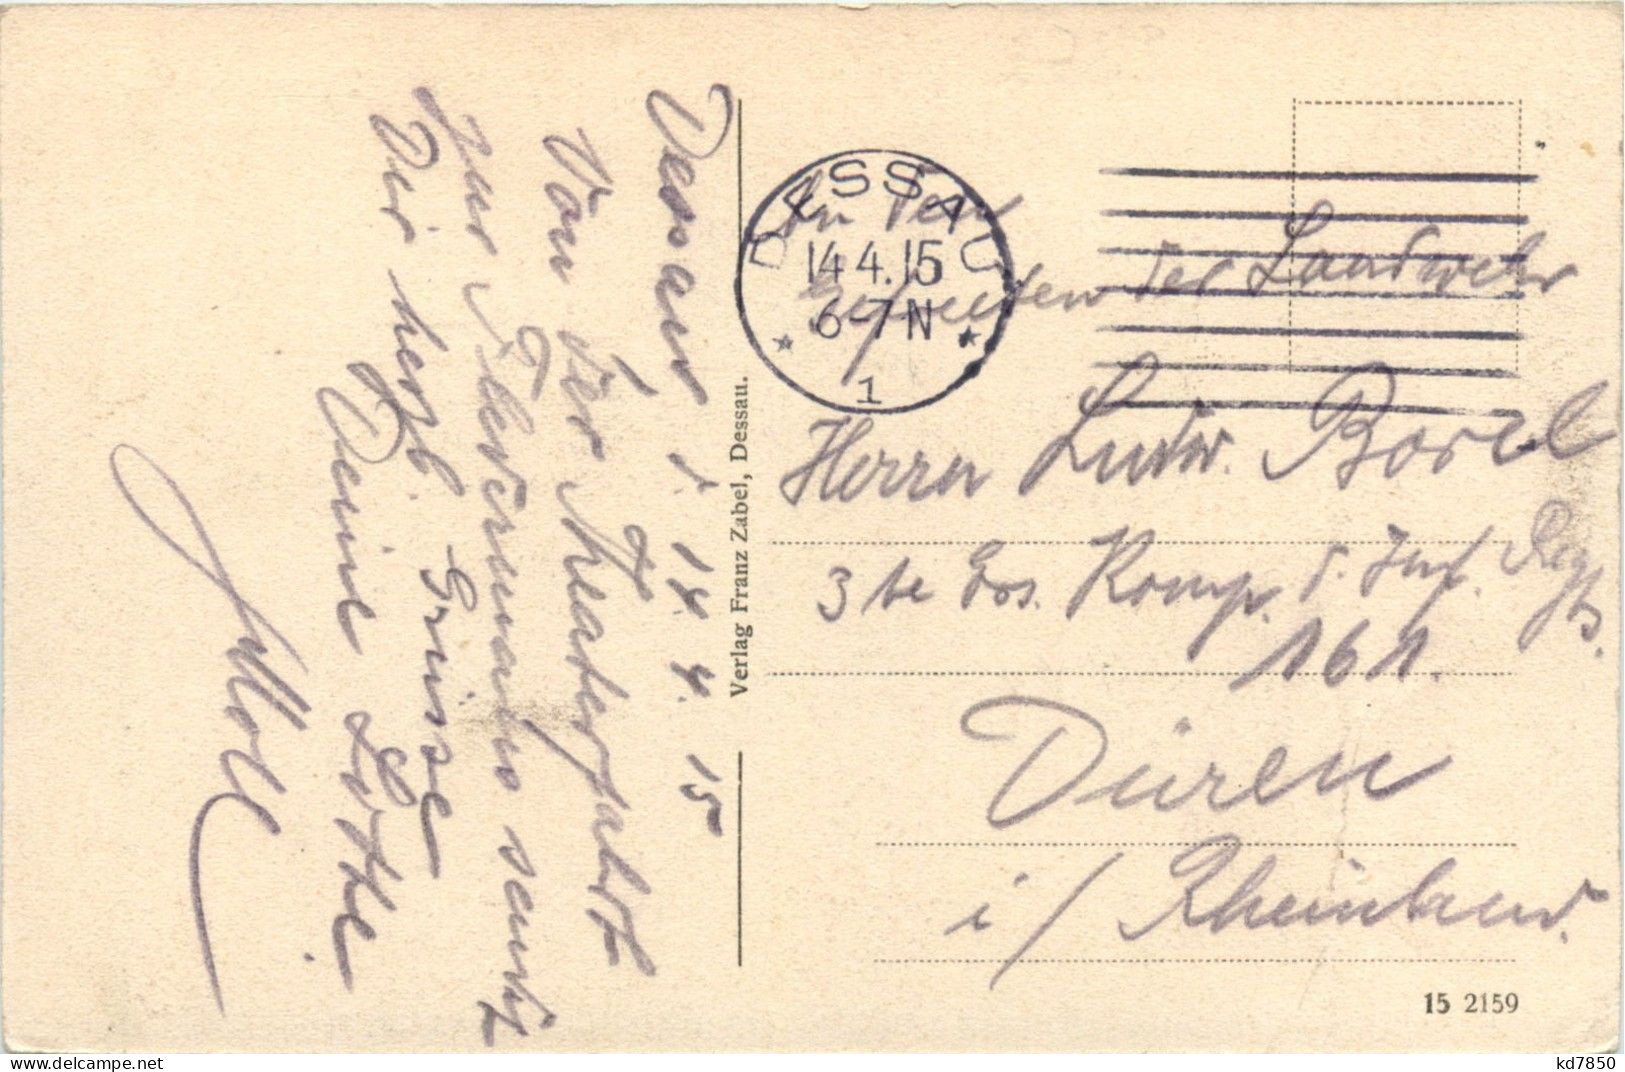 Dessau d. 14.4.15
Von der Theaterfahrt
zur Fledermaus sendet
Dir herzl. Grüsse
Deine Lotte
Verlag Franz Zabel, Dessau.
DESSAU
14 4.15
6-7N
* 1 *
An den
Gefreiten der Landwehr
Herrn Ludw.
3te Ers. Komp. d. Inf. Regts.
161.
Düren
i/ Rheinland.
15 2159
kd7850